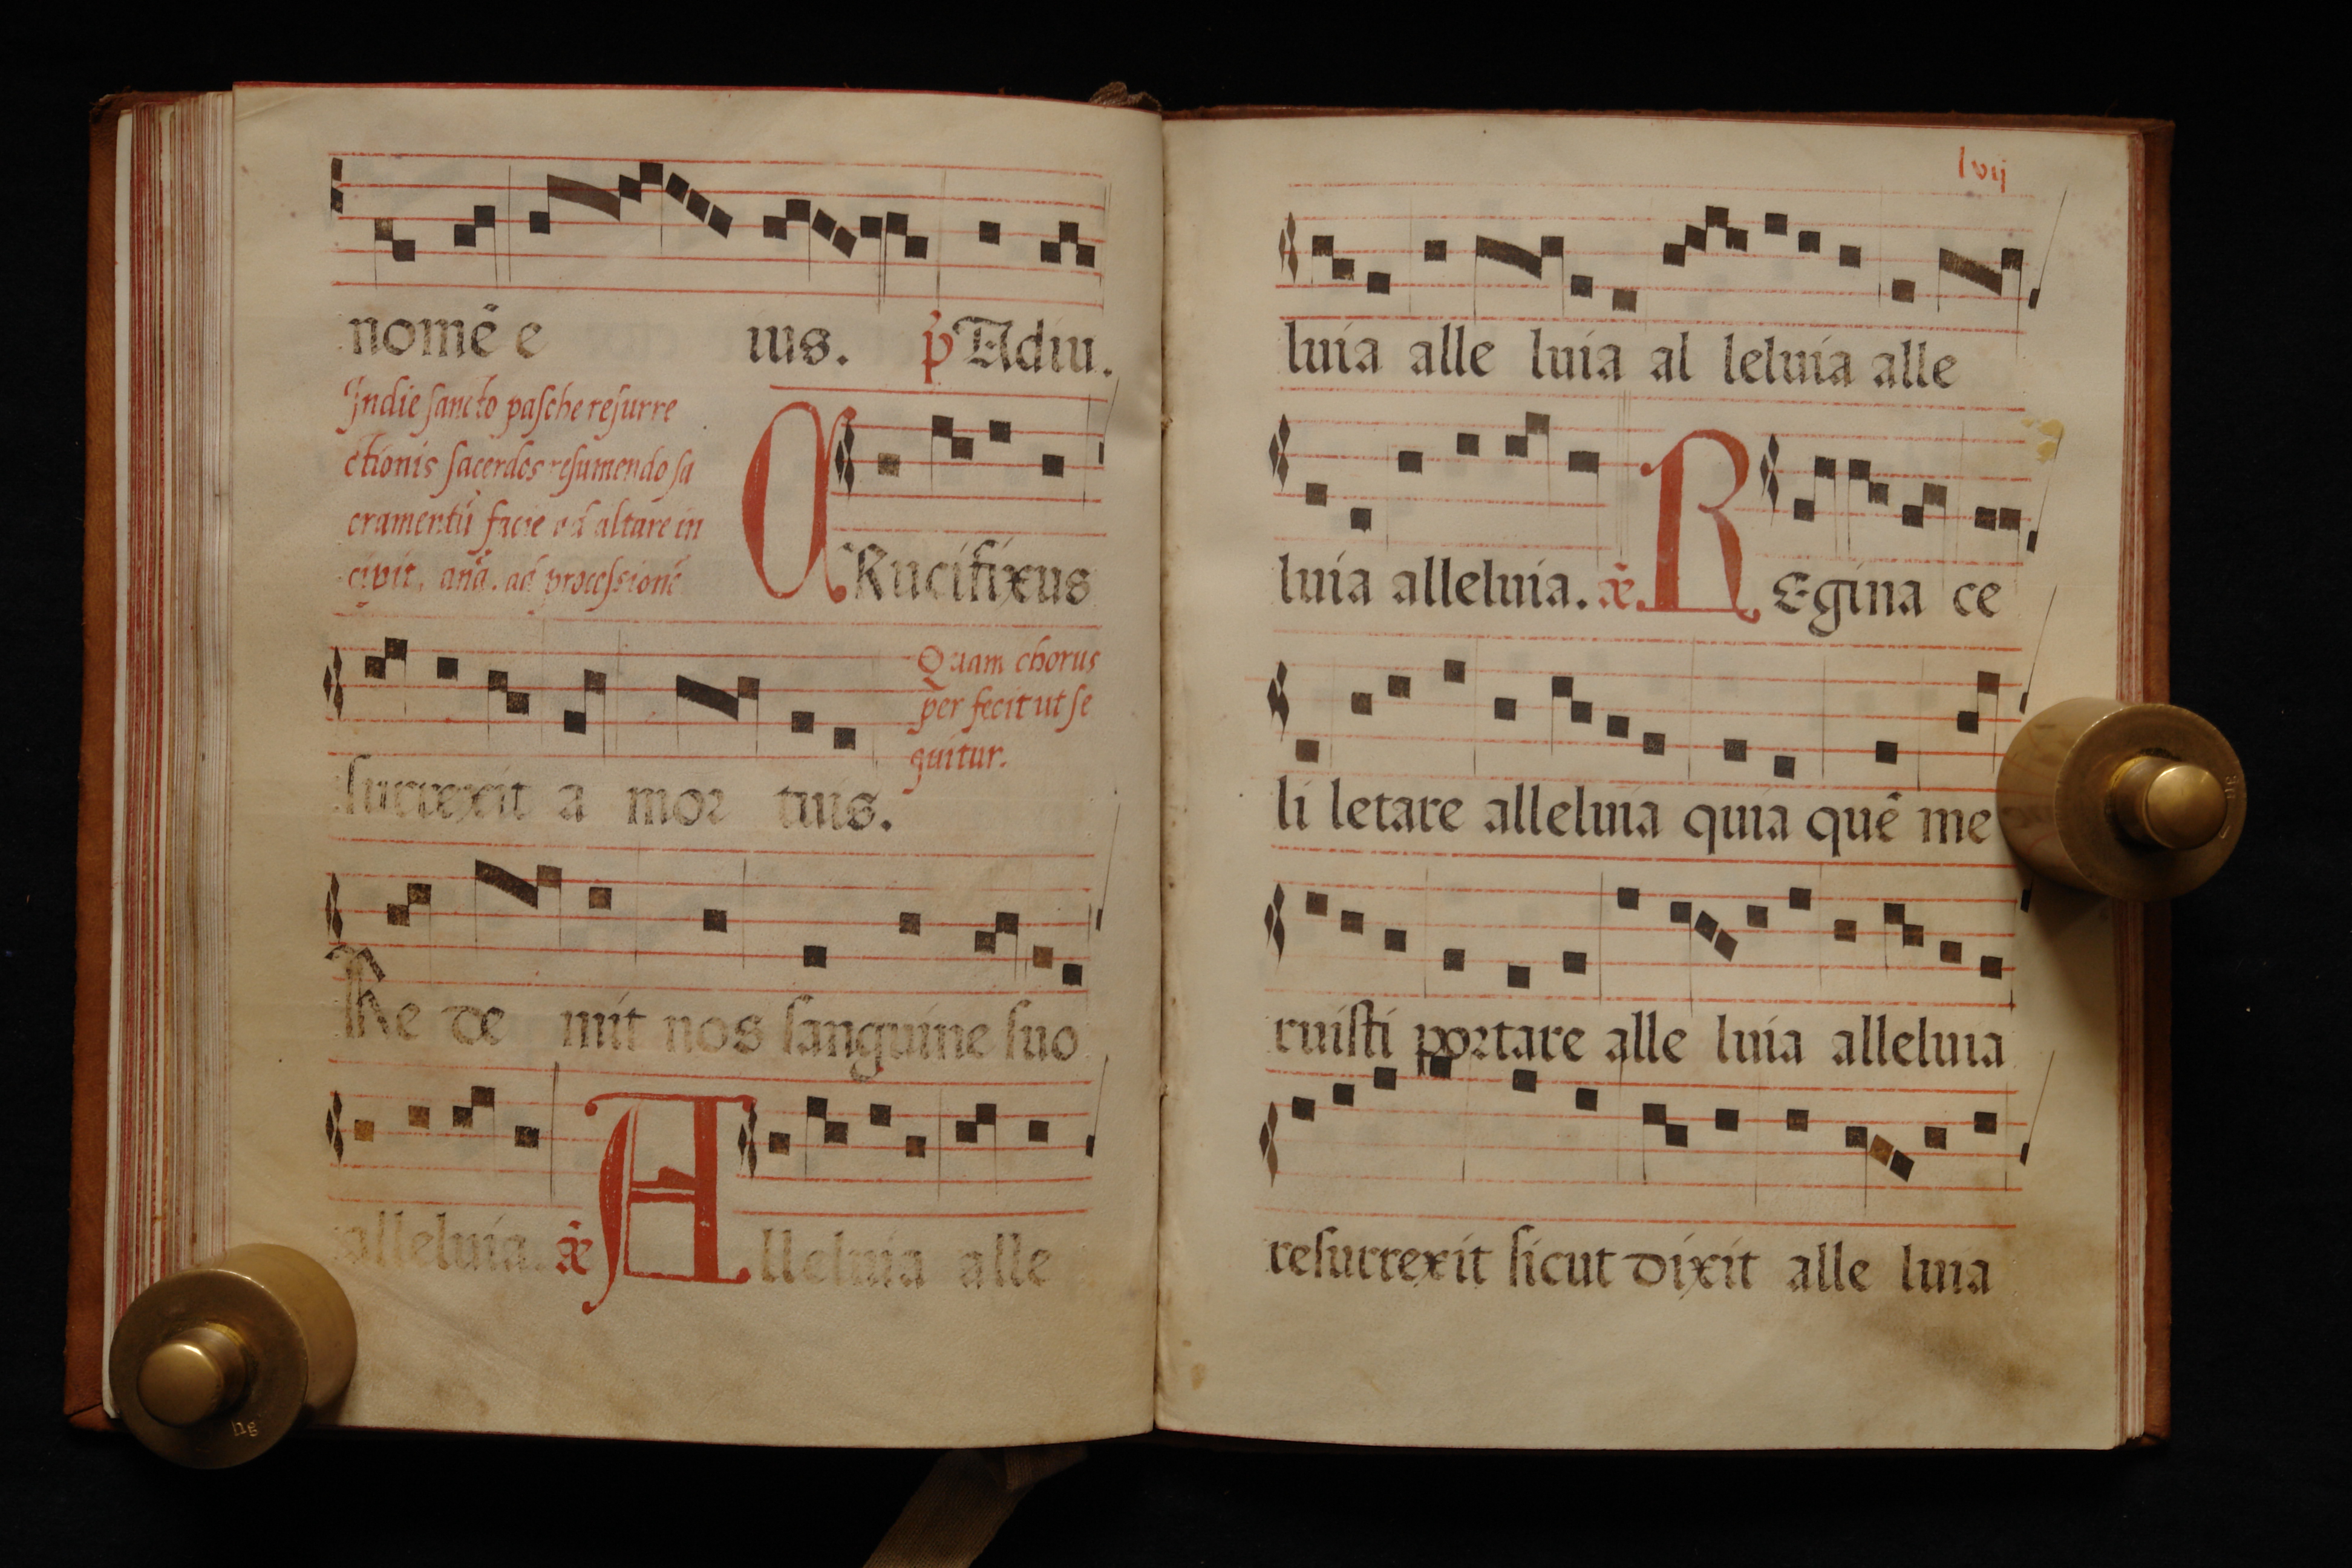 nomē e ius. p̄ Adiu.
In die sancto pasche resurre
ctionis sacerdos resumendo sa
cramentū facie ad altare in
cipit. añā. ad processionē
CRucifixus
Quam chorus
per fecit ut se
quitur.
surrexit a mor tuis.
Re de mit nos sanguine suo
alleluia. æ̂ Alleluia alle
lvij
luia alle luia al leluia alle
luia alleluia. æ̂ REgina ce
li letare alleluia quia quē me
ruisti portare alle luia alleluia
resurrexit sicut dixit alle luia